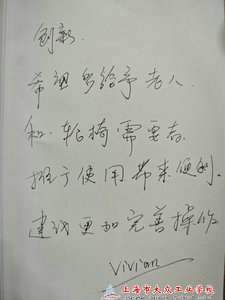 创新.
希望多给予老人
和 轮椅 需要者
推广使用 带来便利.
建议更加完善操作
vivian
上海市大众工业学校